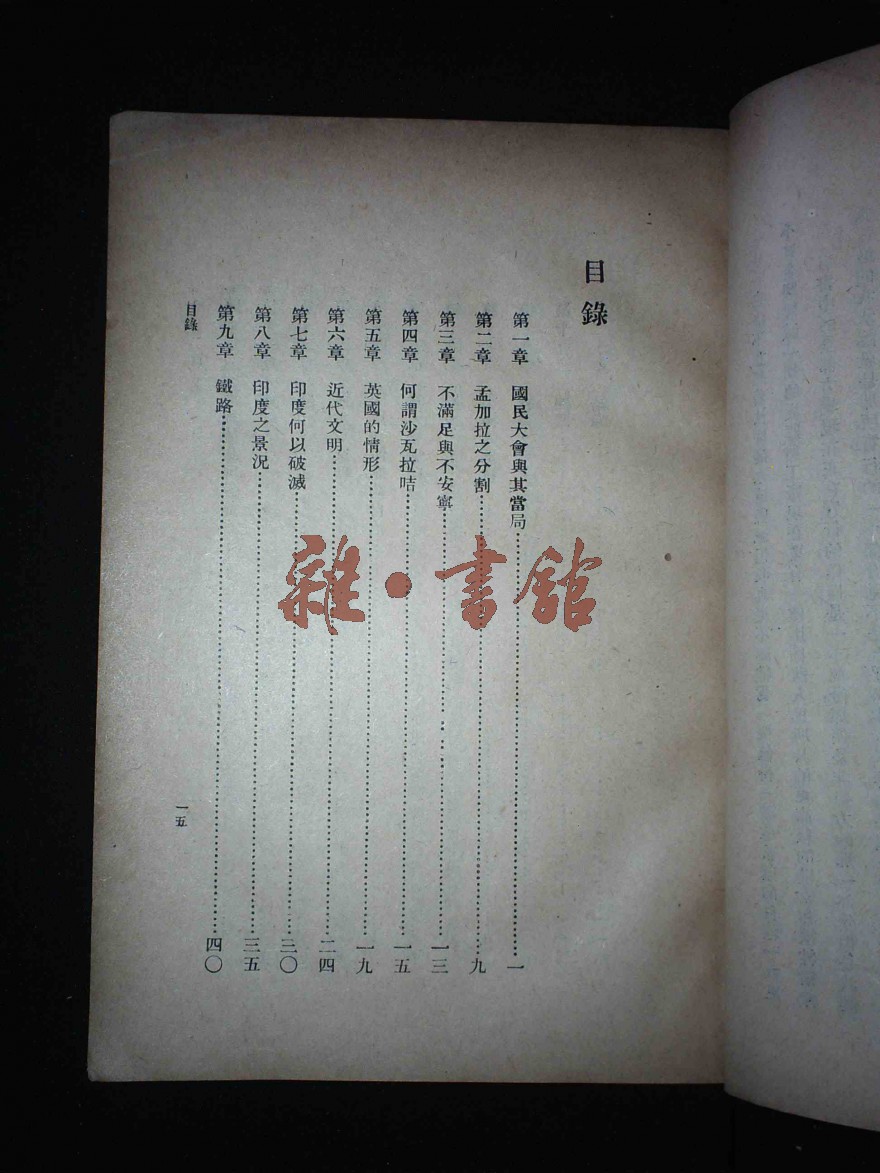 目錄
第一章　國民大會與其當局……………一
第二章　孟加拉之分割……………九
第三章　不滿足與不安寧……………一三
第四章　何謂沙瓦拉咭……………一五
第五章　英國的情形……………一九
第六章　近代文明……………二四
第七章　印度何以破滅……………三〇
第八章　印度之景況……………三五
第九章　鐵路……………四〇
目錄
一五
雜·書館